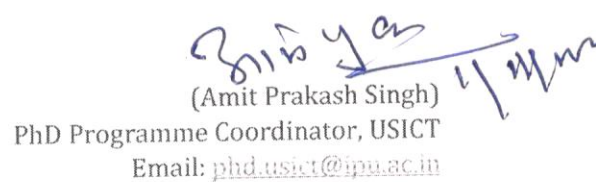 (Amit Prakash Singh)
PhD Programme Coordinator, USICT
Email: phd.usict@ipu.ac.in